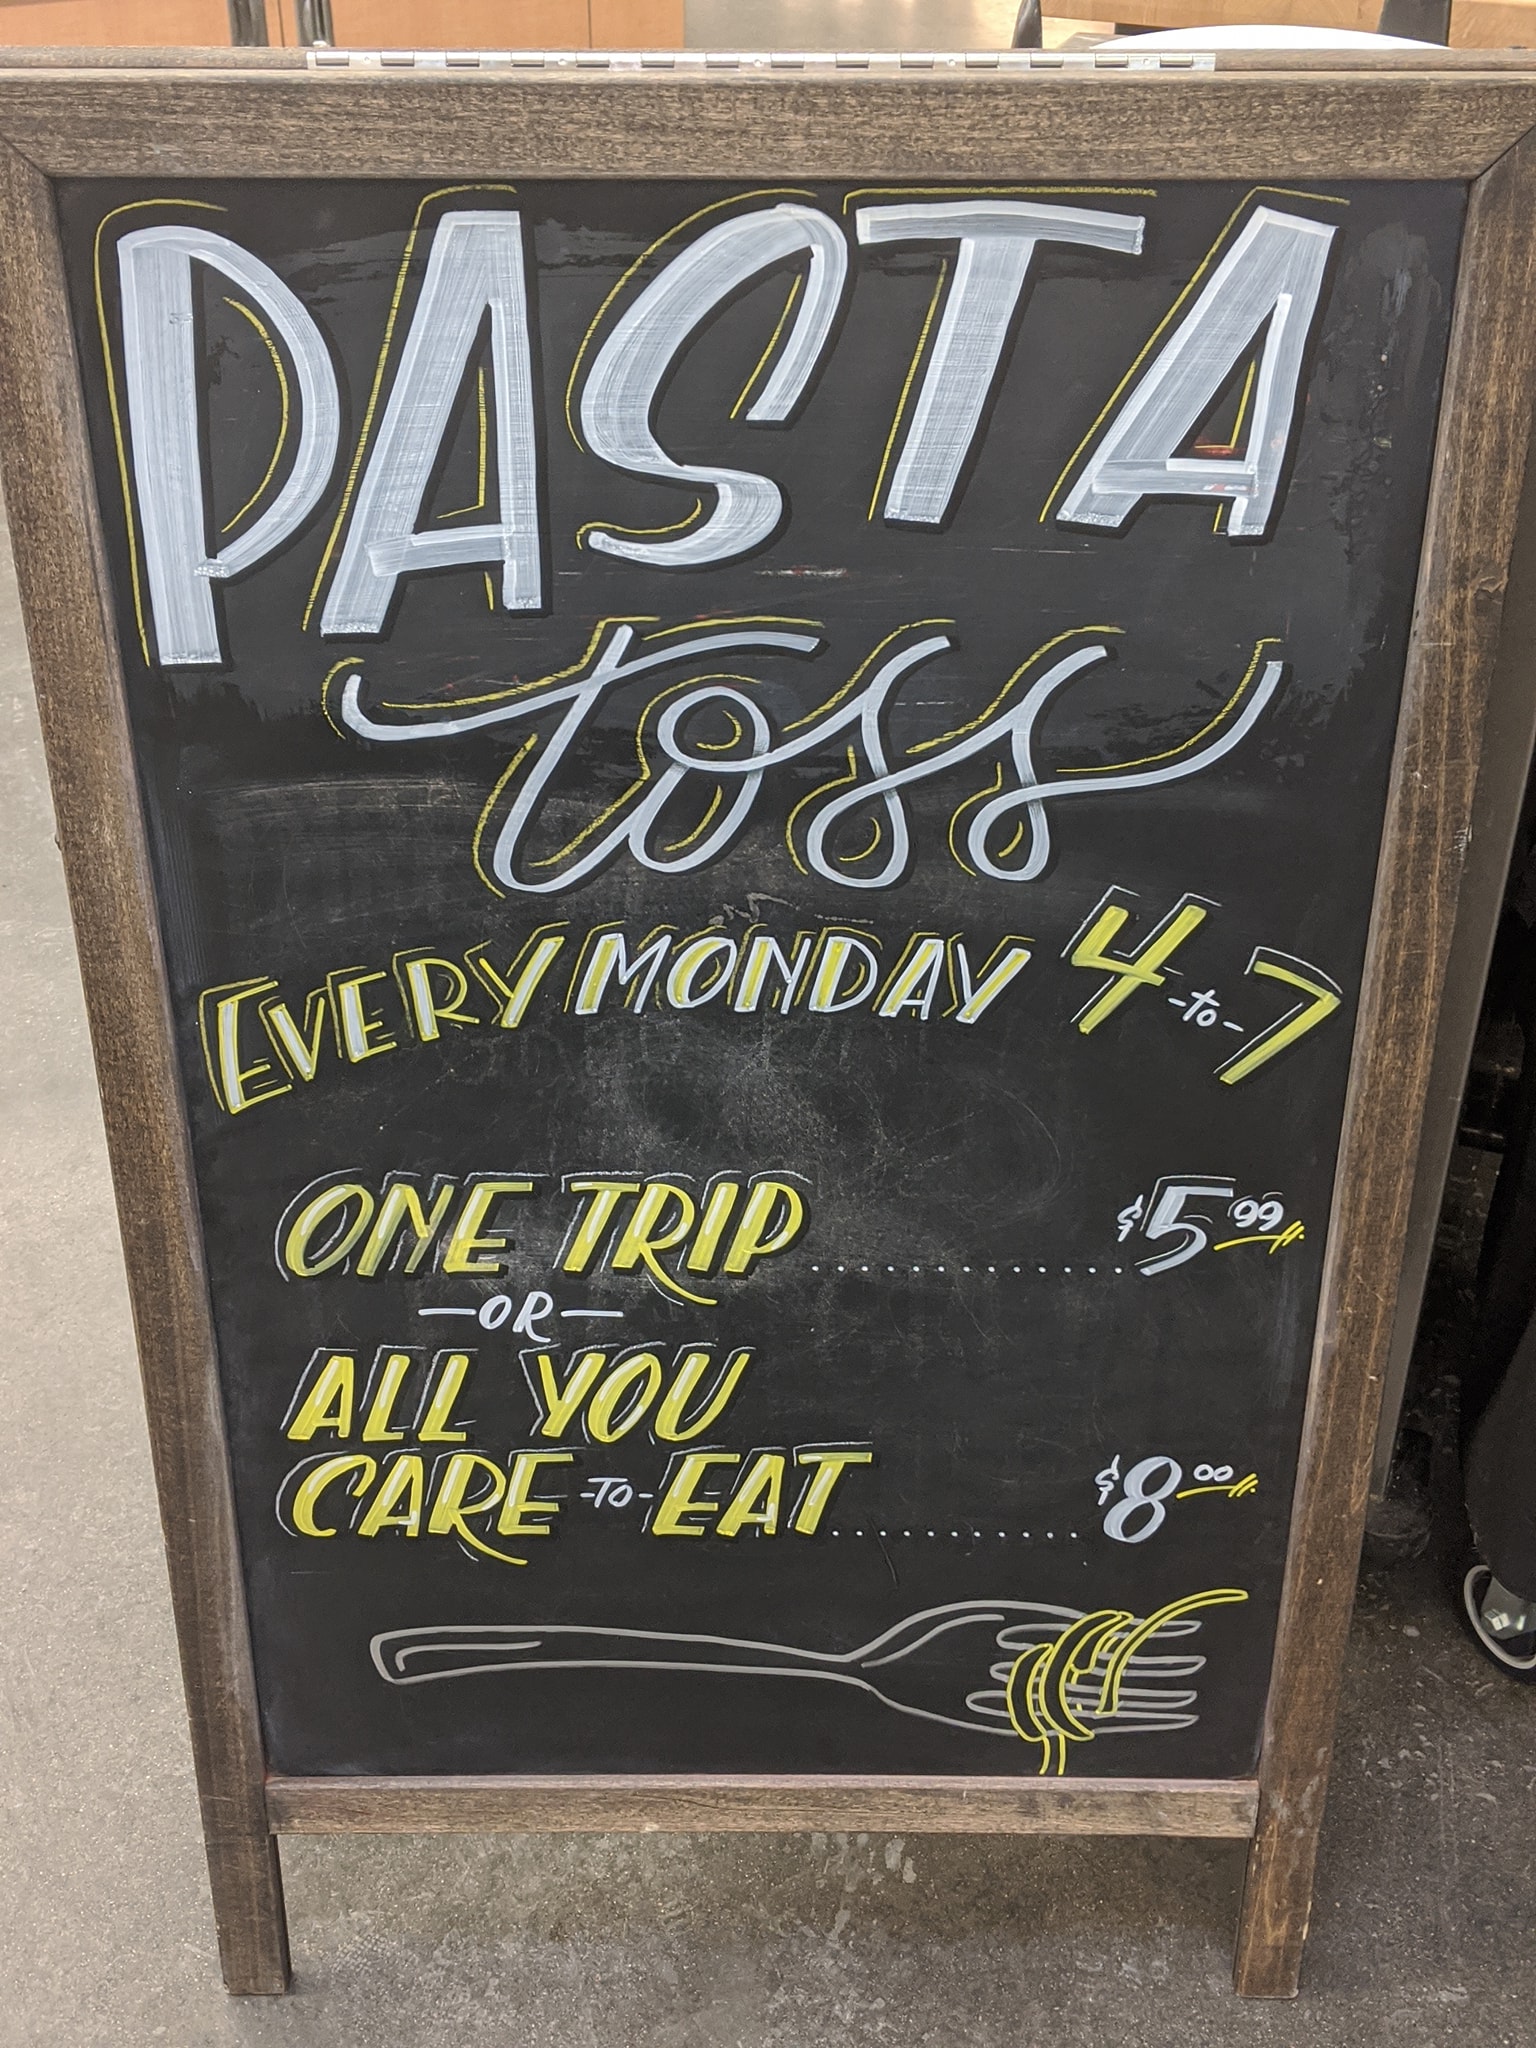 PASTA
toss
EVERY MONDAY 4-to-7
ONE TRIP ............. $5.99
—OR—
ALL YOU
CARE-TO-EAT ........... $8.00